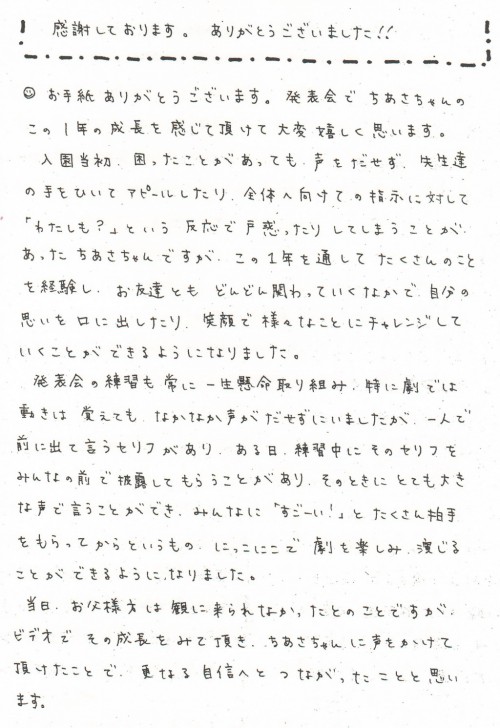 感謝しております。ありがとうございました!!
お手紙ありがとうございます。発表会でちあさちゃんの
この1年の成長を感じて頂けて大変嬉しく思います。
入園当初、困ったことがあっても、声をだせず、先生達
の手をひいてアピールしたり、全体へ向けての指示に対して
「わたしも?」という反応で戸惑ったりしてしまうことが
あったちあさちゃんですが、この1年を通してたくさんのこと
を経験し、お友達ともどんどん関わっていくなかで、自分の
思いを口に出したり、笑顔で様々なことにチャレンジして
いくことができるようになりました。
発表会の練習も常に一生懸命取り組み、特に劇では
動きは覚えても、なかなか声がだせずにいましたが、一人で
前に出て言うセリフがあり、ある日、練習中にそのセリフを
みんなの前で披露してもらうことがあり、そのときにとても大き
な声で言うことができ、みんなに「すごーい!」とたくさん拍手
をもらってからというもの、にっこにこで劇を楽しみ、演じる
ことができるようになりました。
当日、お父様方は観に来られなかったとのことですが、
ビデオでその成長をみて頂き、ちあさちゃんに声をかけて
頂けたことで、更なる自信へとつながったことと思い
ます。